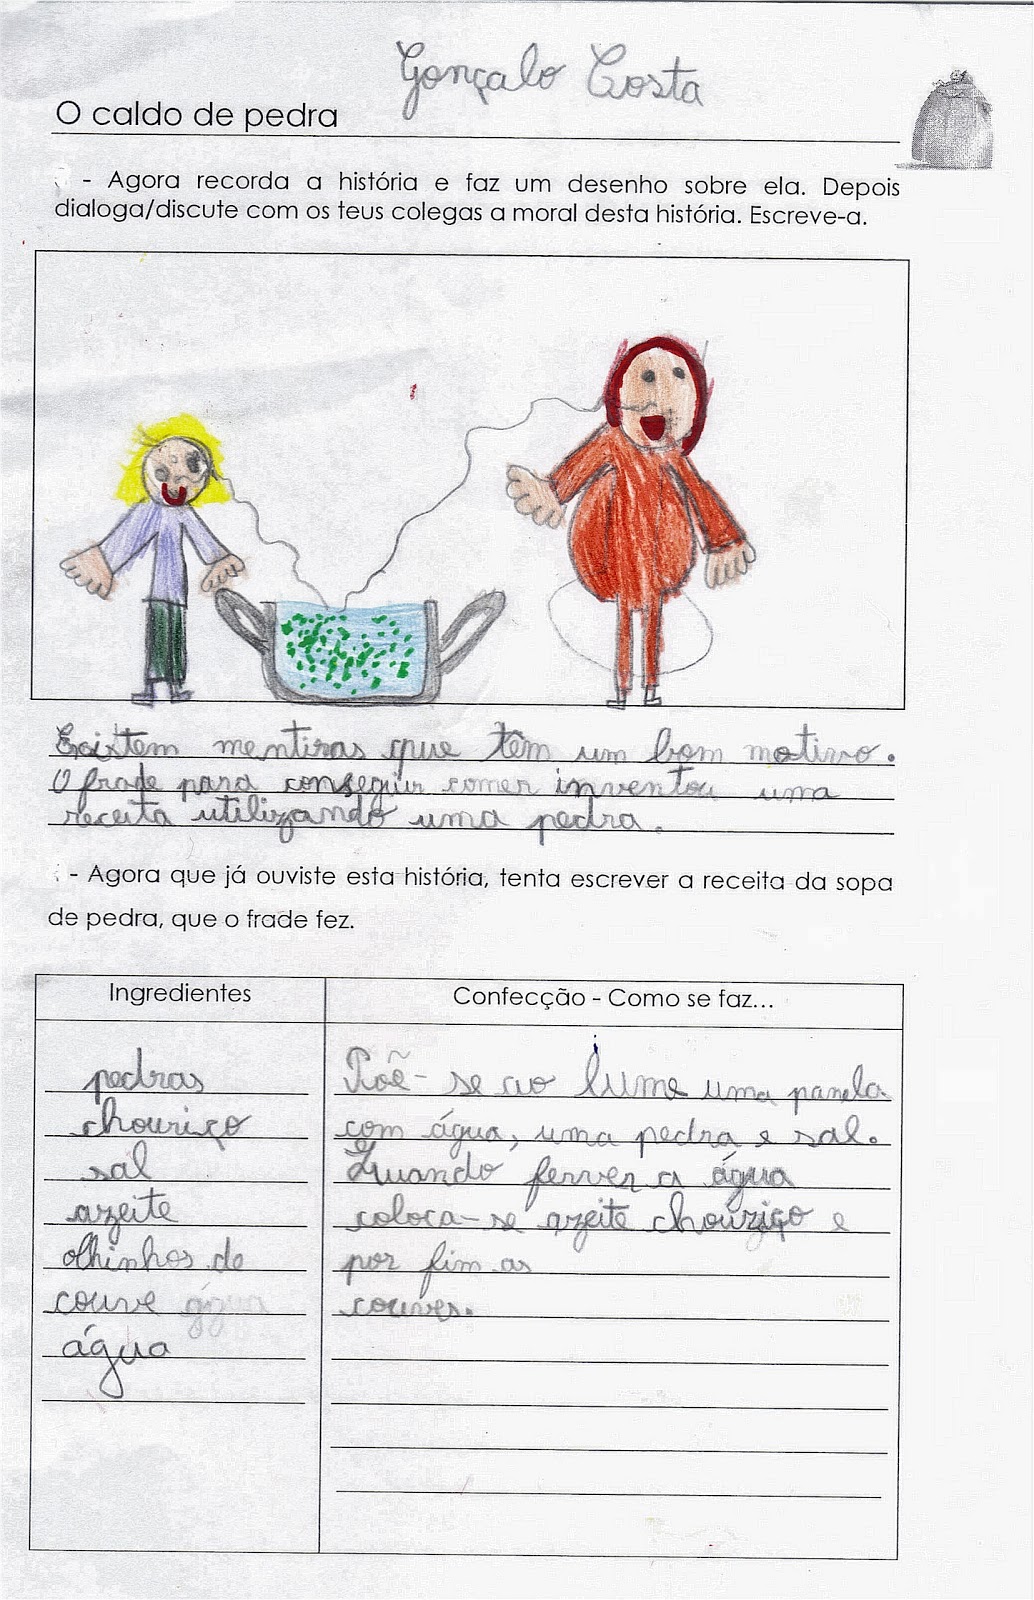 Gonçalo Costa
O caldo de pedra
- Agora recorda a história e faz um desenho sobre ela. Depois
dialoga/discute com os teus colegas a moral desta história. Escreve-a.
Existem mentiras que têm um bom motivo.
O frade para conseguir comer inventou uma
receita utilizando uma pedra.
- Agora que já ouviste esta história, tenta escrever a receita da sopa
de pedra, que o frade fez.
Ingredientes
pedras
chouriço
sal
azeite
olhinhos de
couve água
água
Confecção - Como se faz...
Põe-se ao lume uma panela
com água, uma pedra e sal.
Quando ferver a água
coloca-se azeite chouriço e
por fim as
couves.